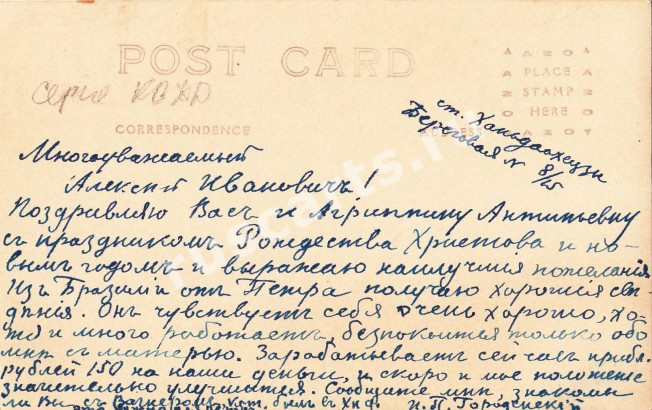 POST CARD
серия КВЖД
PLACE
STAMP
HERE
CORRESPONDENCE
ADDRESS
ст. Ханьдаохецзы
Береговая № 8/15
Многоуважаемый
Алексѣй Ивановичъ!
Поздравляю Васъ и Агриппину Антипьевну
съ праздникомъ Рождества Христова и но-
вымъ годомъ и выражаю наилучшія пожеланія
Изъ Бразиліи отъ Петра получаю хорошія свѣ-
дѣнія. Онъ чувствуетъ себя очень хорошо, хо-
тя и много работаетъ, безпокоится только обо
мнѣ съ матерью. Зарабатываетъ сейчасъ прибл.
рублей 150 на наши деньги, и скоро и мое положеніе
значительно улучшится. Сообщите мнѣ, знакомы
ли Вы съ Вагнеромъ, кот. былъ въ